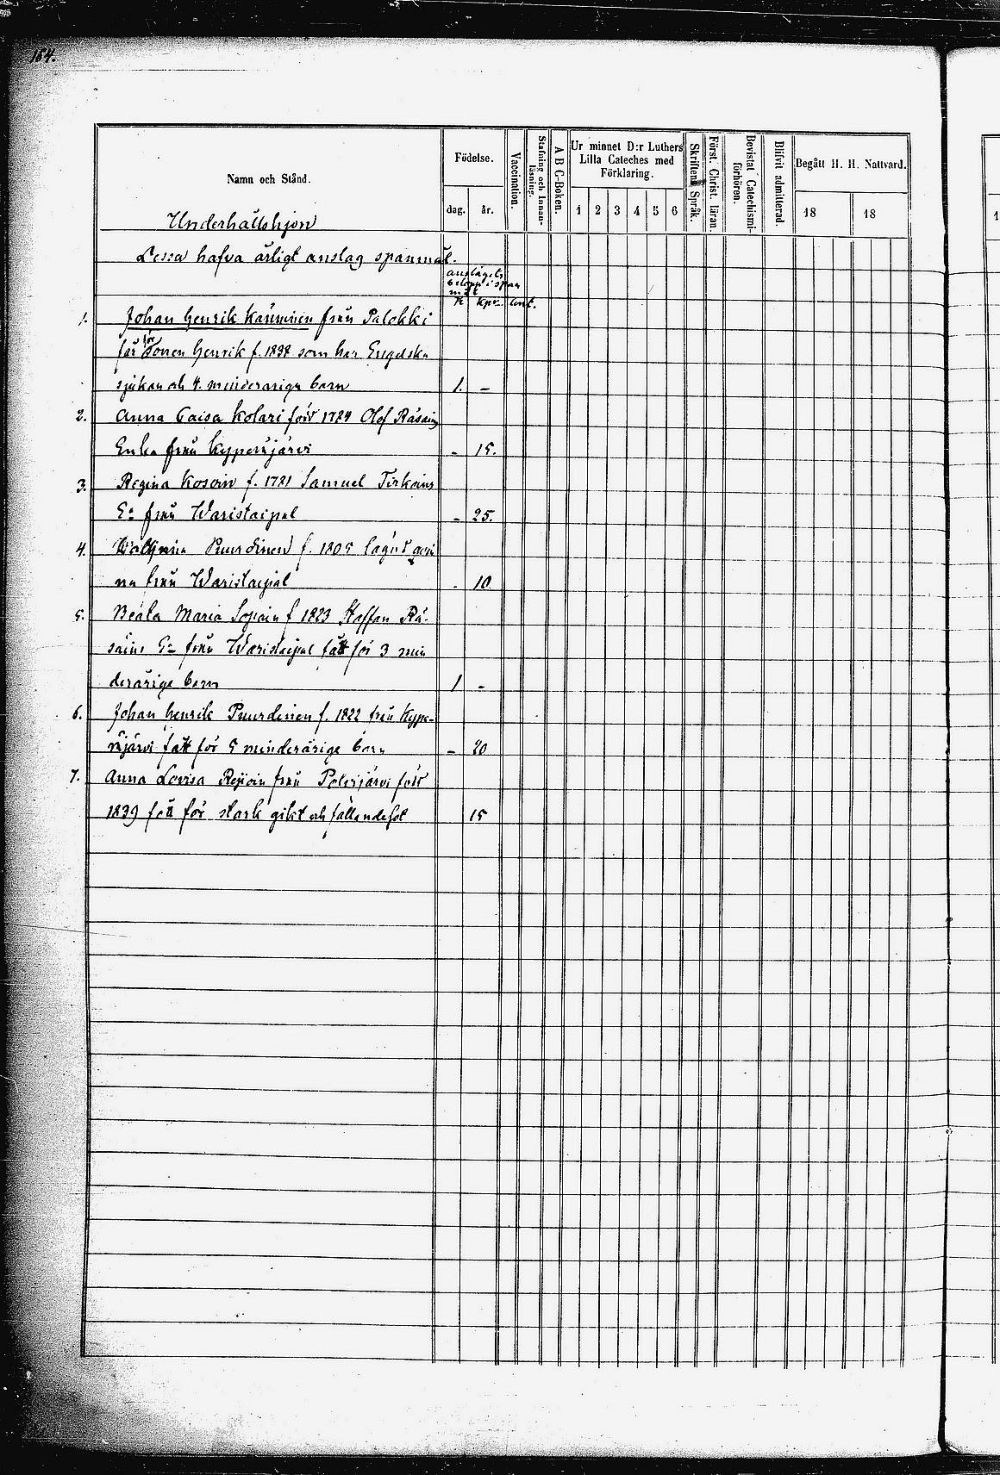 184.
Namn och Stånd.
Födelse.
dag.
år.
Vaccination.
Stafning och Innanläsning.
A B C-Boken.
Ur minnet D:r Luthers
Lilla Cateches med
Förklaring.
1 2 3 4 5 6
Skriftens Språk.
Först. Christ. läran.
Bevistat Catechismiförhören.
Blifvit admitterad.
Begått H. H. Nattvard.
18 18
Underhållshjon
Dessa hafva årligt anslag spanmål.
anslagets
belopp i span
mål
kpr.
1. Johan Henrik från Palokki
får för sonen Henrik f. 1838 som har Engelska
sjukan och 4. minderåriga barn 1. -
2. Anna Caisa Kolari född 1784 Olof Räsäin
Enka från - 15.
3. Regina Kosoin f. 1781 Samuel Tirkoins
Ea från Waristaipal - 25.
4. f. 1805
från Waristaipal - 10
5. Beata Maria Sopain f 1823 Staffan Rä-
säins Ea från Waristaipal fått för 3 min
derårige barn 1 -
6. Johan Henrik f. 1822 från
fått för 5 minderårige barn - 20
7. Anna Lovisa från Petrijärvi född
1839 fått för stark gikt och fallandesot 15